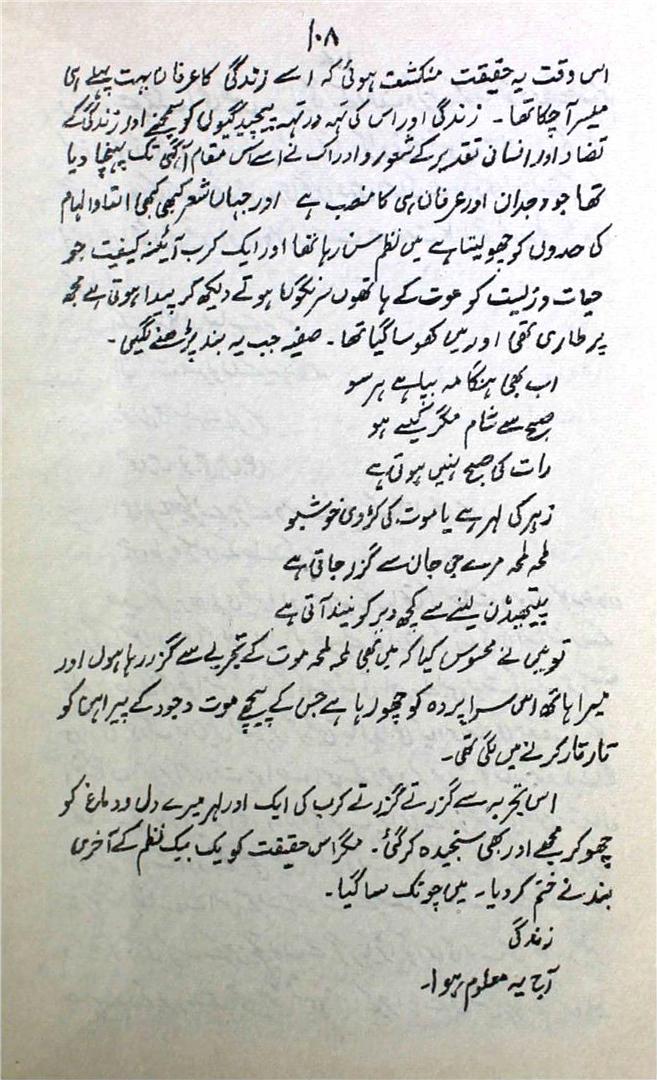 ۱۰۸
اس وقت یہ حقیقت منکشف ہوئی کہ اسے زندگی کا عرفان بہت پہلے ہی
میسر آ چکا تھا۔ زندگی اور اس کی تہہ در تہہ پیچیدگیوں کو سمجھنے اور زندگی کے
تضاد اور انسانی تقدیر کے شعور و ادراک نے اسے اس مقام آگہی تک پہنچا دیا
تھا جو وجدان اور عرفان ہی کا منصب ہے اور جہاں شعر کبھی کبھی القا و الہام
کی حدوں کو چھو لیتا ہے میں نظم سن رہا تھا اور ایک کرب آئینہ کیفیت جو
حیات و زیست کو موت کے ہاتھوں سرنگوں ہوتے دیکھ کر پیدا ہوتی ہے مجھ
پر طاری تھی اور میں کھو سا گیا تھا۔ صفیہ جب یہ بند پڑھنے لگیں۔
اب بھی ہنگامہ بپا ہے ہر سو
صبح سے شام مگر کیسے ہو
رات کی صبح نہیں ہوتی ہے
زہر کی لہر ہے یا موت کی کڑوی خوشبو
لمحہ لمحہ مرے جی جان سے گزر جاتی ہے
پیتھیڈن لینے سے کچھ دیر کو نیند آتی ہے
تو میں نے محسوس کیا کہ میں بھی لمحہ لمحہ موت کے تجربے سے گزر رہا ہوں اور
میرا ہاتھ اس سرا پردہ کو چھو رہا ہے جس کے پیچھے موت وجود کے پیراہن کو
تار تار کرنے میں لگی تھی۔
اس تجربہ سے گزرتے گزرتے کرب کی ایک اور لہر میرے دل و دماغ کو
چھو کر مجھے اور بھی سنجیدہ کر گئی۔ مگر اس حقیقت کو یک بیک نظم کے آخری
بند نے ختم کر دیا۔ میں چونک سا گیا۔
زندگی
آج یہ معلوم ہوا۔